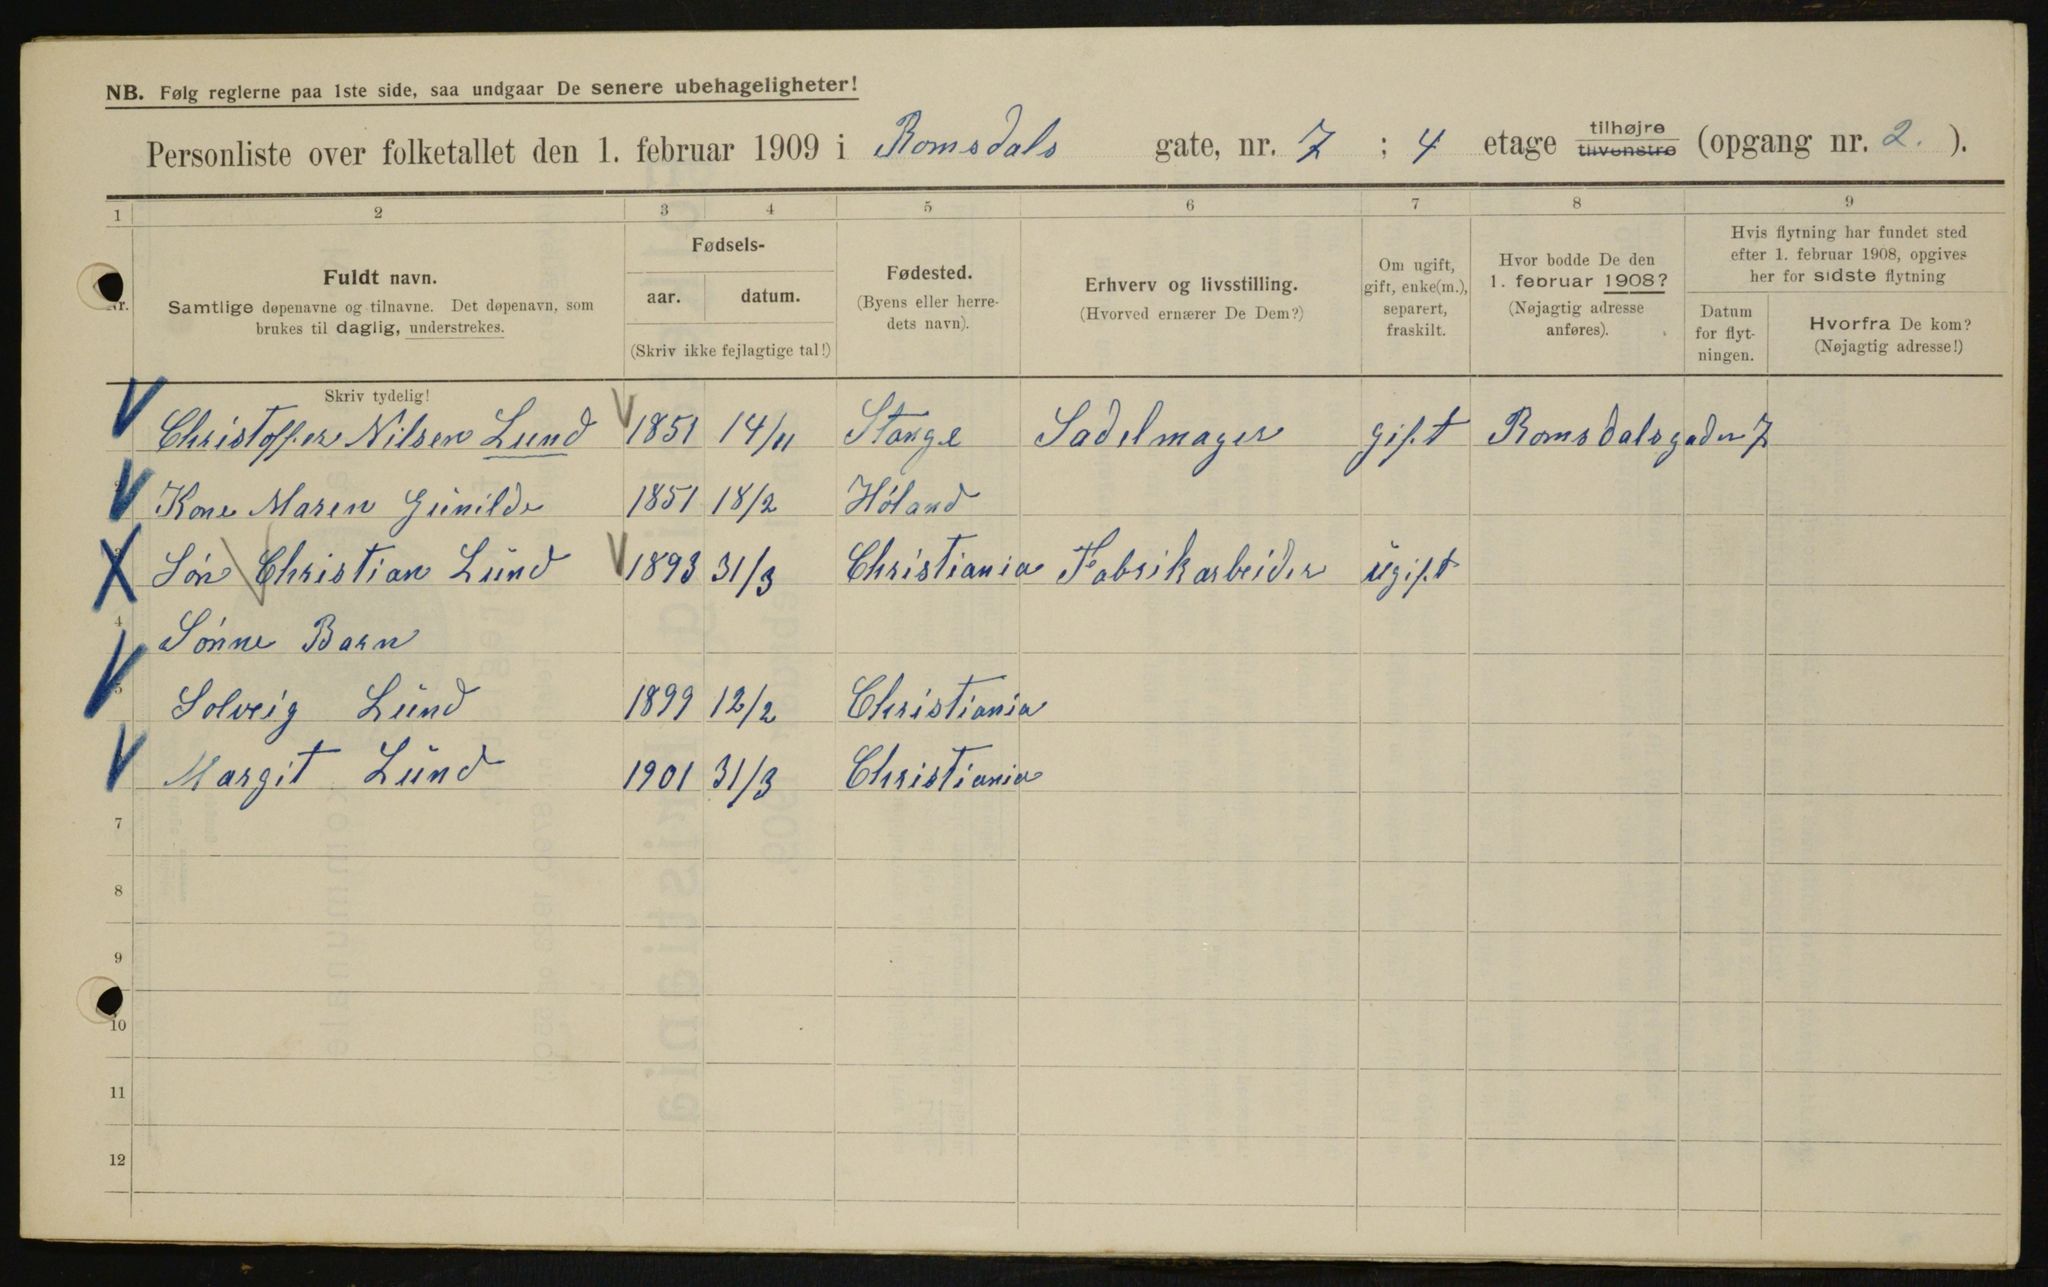 NB. Følg reglerne paa 1ste side, saa undgaar De senere ubehageligheter!
Personliste over folketallet den 1. februar 1909 i Romsdals gate, nr. 7 ; 4 etage tilhøjre tilvenstre (opgang nr. 2. ).
1 2 3 4 5 6 7 8 9
Nr.
Fuldt navn.
Samtlige døpenavne og tilnavne. Det døpenavn, som
brukes til daglig, understrekes.
Fødsels-
aar. datum.
(Skriv ikke fejlagtige tal!)
Fødested.
(Byens eller herre-
dets navn).
Erhverv og livsstilling.
(Hvorved ernærer De Dem?)
Om ugift,
gift, enke(m.),
separert,
fraskilt.
Hvor bodde De den
1. februar 1908?
(Nøjagtig adresse
anføres).
Hvis flytning har fundet sted
efter 1. februar 1908, opgives
her for sidste flytning
Datum
for flyt-
ningen.
Hvorfra De kom?
(Nøjagtig adresse!)
Skriv tydelig!
Christoffer Nilsen Lund 1851 14/11 Stange Sadelmager gift Romsdalsgaden 7
Kone Maren Gunilde 1851 18/2 Høland
3 Søn Christian Lund 1893 31/3 Christiania Fabrikarbeider ugift
4 Sønne Barn
5 Solveig Lund 1899 12/2 Christiania
Margit Lund 1901 31/3 Christiania
7
8
9
10
11
12